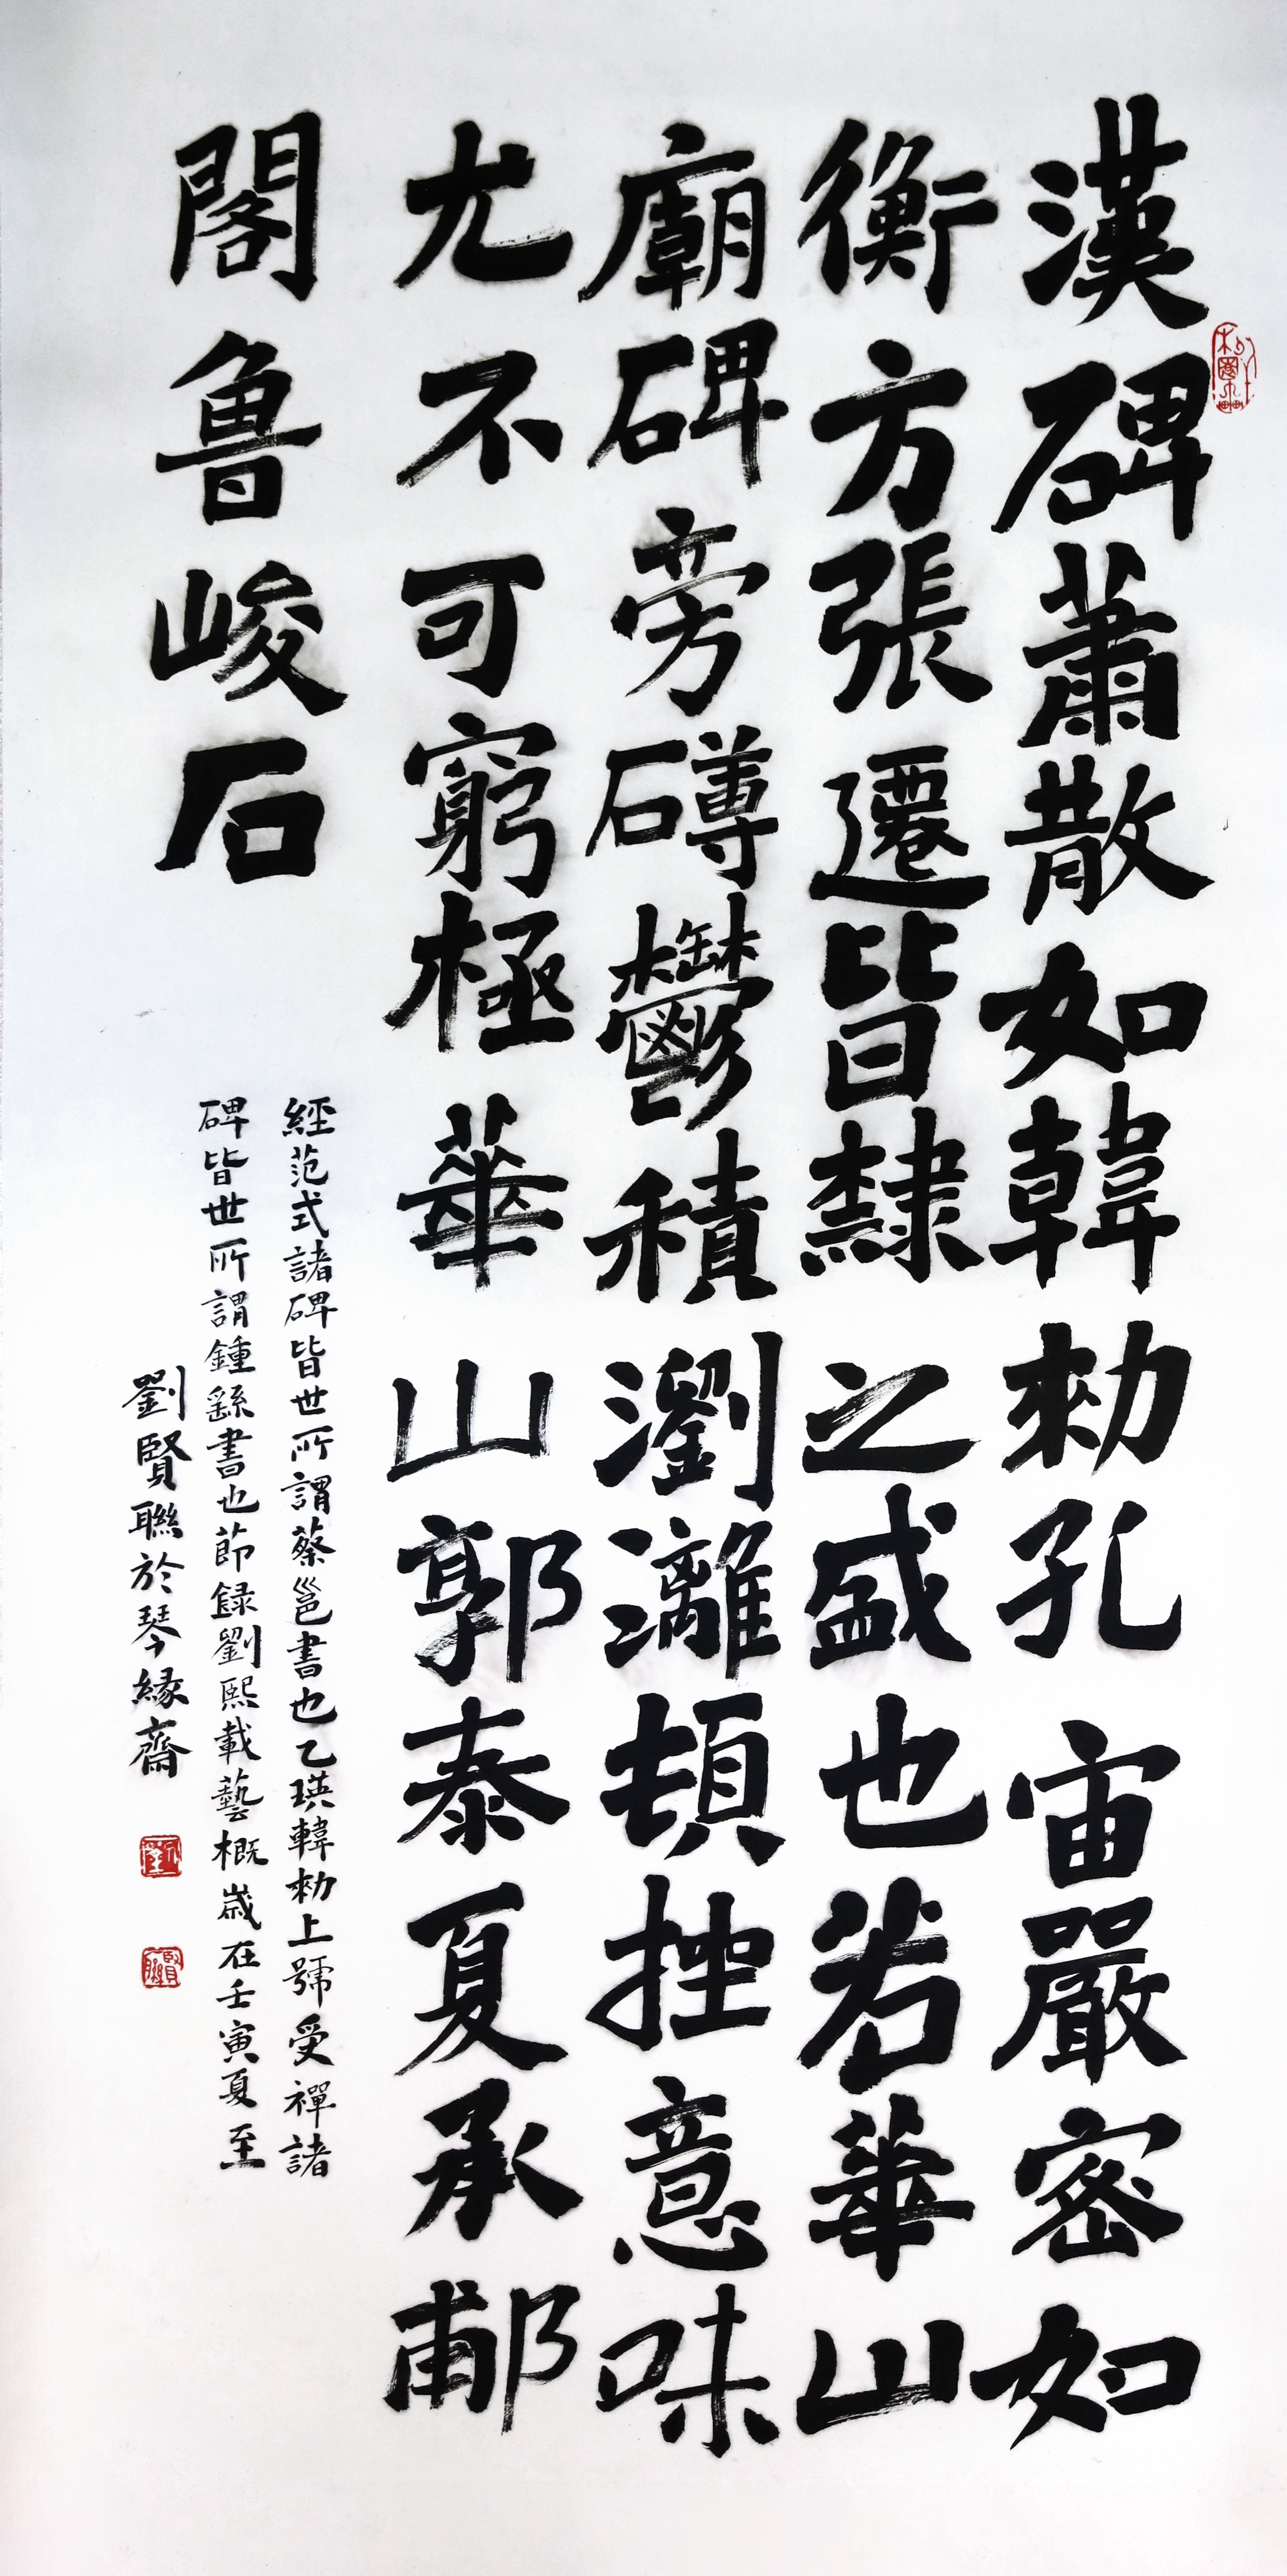 漢碑蕭散如韓勑孔宙嚴密如
衡方張遷皆隸之盛也若華山
廟碑旁礴鬱積瀏灕頓挫意味
尤不可窮極華山郭泰夏承郙
閣魯峻石
經范式諸碑皆世所謂蔡邕書也乙瑛韓勑上號受禪諸
碑皆世所謂鍾繇書也節録劉熙載藝概歲在壬寅夏至
劉賢聯於琴緣齋